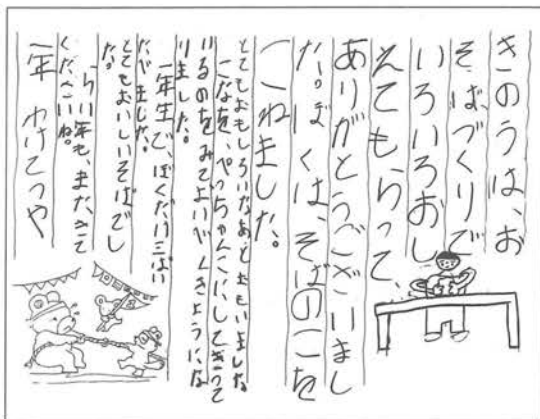 きのうは、お
そばづくりで
いろいろおし
えてもらって、
ありがとうございまし
た。ぼくは、そばのこを
こねました。
とてもおもしろいなあとおもいました。
こなを、ぺっちゃんこにしてきって
いるのをみてよいべんきょうにな
りました。
一年生で、ぼくだけ三ばい
たべました。
とてもおいしいそばでし
た。
らい年も、また、きて
くださいね。
一年 わけてつや